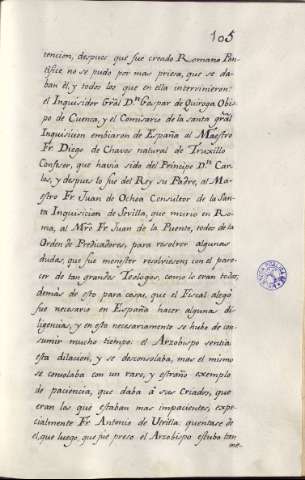 105
tencion, despues que fue creado Romano Pon-
tifice no se pudo por mas priesa, que se da-
ban él, y todos los que en ella intervinieron:
el Inquisidor Grâl Dn Gaspar de Quiroga Obis-
po de Cuenca, y el Comisario de la santa grâl
Inquisicion embiaron de España al Maestro
Fr Diego de Chaves natural de Truxillo
Confesor, que havia sido del Principe Dn Car-
los, y despues lo fue del Rey su Padre, al Ma-
estro Fr Juan de Ochoa Consultor de la San-
ta Inquisicion de Sevilla, que murio en Ro-
ma, al Mro Fr Juan de la Puente, todos de la
Orden de Predicadores, para resolver algunas
dudas, que fue menester resolviesen con el pare-
cer de tan grandes Teologos, como lo eran todos;
demàs de esto para cosas, que el Fiscal alegó
fue necesario en España hacer algunas di-
ligencias, y en esta necesariamente se hubo de con-
sumir mucho tiempo: el Arzobispo sentia
esta dilacion, y se desconsolaba, mas el mismo
se consolaba con un raro, y estraño exemplo
de paciencia, que daba â sus Criados, que
eran los que estaban mas impacientes, expe-
cialmente Fr Antonio de Utrilla: quentase de
él, que luego, que fue preso el Arzobispo estubo tan
me-